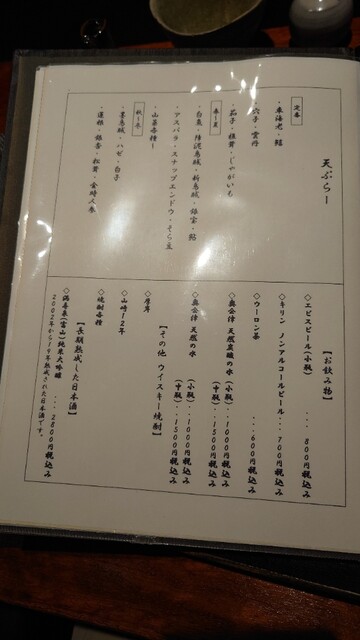 天ぷらー
定番
・車海老・鱚
・穴子・雲丹
春〜夏
・茄子・椎茸・じゃがいも
・白魚・障泥烏賊・新烏賊・銀宝・鮎
・アスパラ・スナップエンドウ・そら豆
・山菜各種ー
秋〜冬
・墨烏賊・ハゼ・白子
・蓮根・銀杏・松茸・金時人参
【お飲み物】
◇エビスビール(小瓶) ・・・800円税込み
◇キリン ノンアルコールビール・・・700円税込み
◇ウーロン茶 ・・・600円税込み
◇奥会津 天然炭酸の水(小瓶)・・1000円税込み
(中瓶)・・1500円税込み
◇奥会津 天然の水 (小瓶)・・1000円税込み
(中瓶)・・1500円税込み
【その他 ウイスキー焼酎】
◇厚岸
◇山崎12年
◇焼酎各種
【長期熟成した日本酒】
◇満寿泉(富山)純米大吟醸 ・・・2800円税込み
2002年から19年熟成された日本酒です。